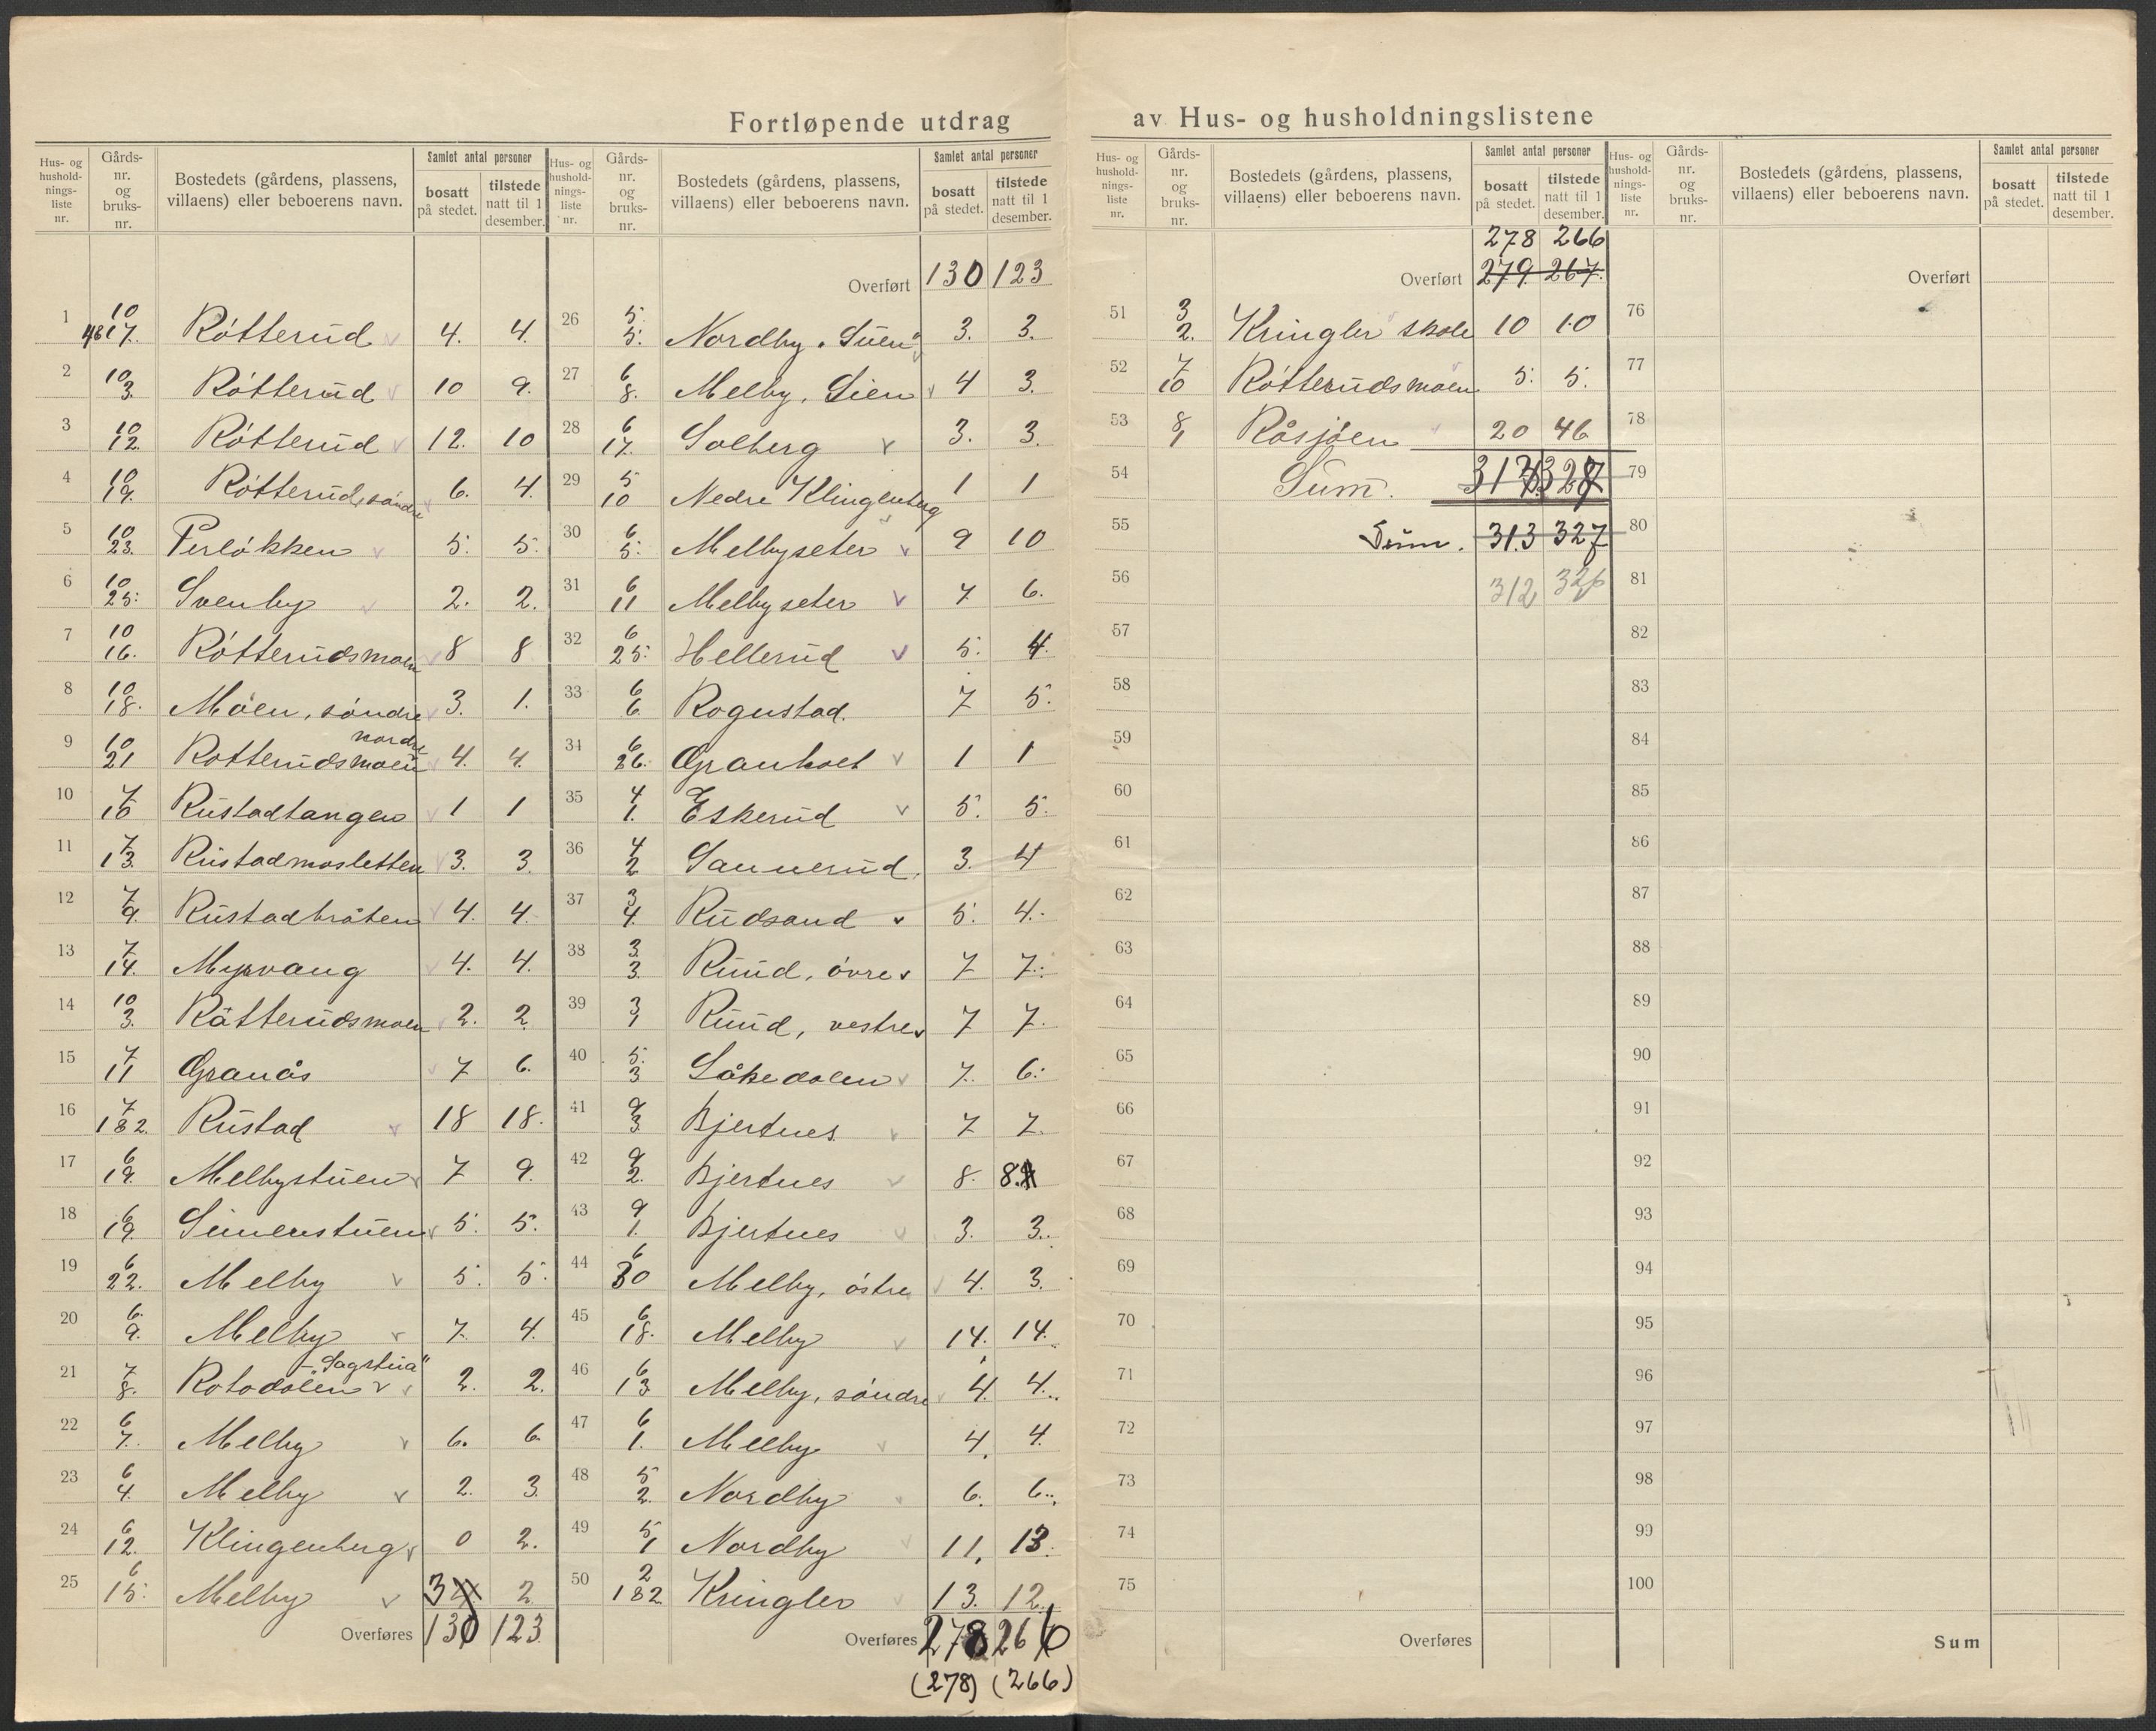 Fortløpende utdrag av Hus- og husholdningslistene
Hus- og hushold-nings-liste nr. Gårds-nr. og bruks-nr. Bostedets (gårdens, plassens, villaens) eller beboerens navn. Samlet antal personer bosatt på stedet. tilstede natt til 1 desember.
1 10 4817. Røtterud 4. 4.
2 10 3. Røtterud 10 9.
3 10 12. Røtterud 12. 10
4 10 19. Røtterud, søndre 6. 4.
5 10 23. Perløkken 5. 5.
6 10 25. Svenby 2. 2.
7 10 16. Røtterudsmoen 8 8
8 10 18. Moen, søndre 3. 1.
9 10 21 Rotterudsmoen nordre 4. 4.
10 7 Rustadtangen 1 1
11 7 13. Rustadmosletten 3. 3.
12 7 9. Rustadbråten 4. 4.
13 7 14. Myrvang 4. 4.
14 10 3. Råtterudsmoen 2. 2
15 7 11 Granås 7 6.
16 7 1&2. Rustad 18 18.
17 6 19. Melbystuen 7 9.
18 6 19. Simenstuen 5. 5.
19 6 22. Melby 5. 5.
20 6. 9. Melby 7. 4.
21 7 8. Rotodalen - Sagstua" 2. 2.
22 6 7. Melby 6. 6.
23 6 4. Melby 2. 3.
24 6 12. Klingenberg 0 2.
25 6 15. Melby 3 2
Overføres 130 123
Hus- og hushold-nings-liste nr. Gårds-nr. og bruks-nr. Bostedets (gårdens, plassens, villaens) eller beboerens navn. Samlet antal personer bosatt på stedet. tilstede natt til 1 desember.
Overført 130 123
26 5. 5. Nordby. 3. 3.
27 6 8. Melby, 4 3.
28 6 17. Solberg 3. 3.
29 5 10 Nedre Klingenberg 1 1
30 6 5. Melbyseter 9 10
31 6 11 Melbyseter 7 6.
32 6 25. Hellerud 5. 4.
33 6 6. Rogustad. 7 5.
34 6 26. Granholt 1 1
35 4 1. Eskerud 5. 5.
36 4 2 Sannerud. 3. 4
37 3 4. Rudsand 5. 4.
38 3. 3. Ruud, øvre 7 7.
39 3 1 Ruud, vestre 7 7.
40 5. 3 Låkedalen 7. 6.
41 9 3. Bjertnes 7 7.
42 9 2. Bjertnes 8. 8.
43 9 1. Bjertnes 3. 3.
44 6 30 Melby, østre 4. 3.
45 6 18. Melby 14. 14.
46 6 13 Melby, søndre 4. 4.
47 6 1. Melby 4. 4.
48 5 2. Nordby 6. 6.
49 5 1 Nordby 11. 13.
50 2 1&2 Kringler 13. 12.
Overføres 278 266
(278) (266)
Hus- og hushold-nings-liste nr. Gårds-nr. og bruks-nr. Bostedets (gårdens, plassens, villaens) eller beboerens navn. Samlet antal personer bosatt på stedet. tilstede natt til 1 desember.
278 266
Overført 279. 267.
51 3 2. Kringler skole 10 10
52 7 10 Røtterudsmoen 5. 5.
53 8 1 Råsjøen 20 46
54 Sum.
55 Sum. 313 327
56 312 326
57
58
59
60
61
62
63
64
65
66
67
68
69
70
71
72
73
74
75
Overføres
Hus- og hushold-nings-liste nr. Gårds-nr. og bruks-nr. Bostedets (gårdens, plassens, villaens) eller beboerens navn. Samlet antal personer bosatt på stedet. tilstede natt til 1 desember.
Overført
76
77
78
79
80
81
82
83
84
85
86
87
88
89
90
91
92
93
94
95
96
97
98
99
100
Sum